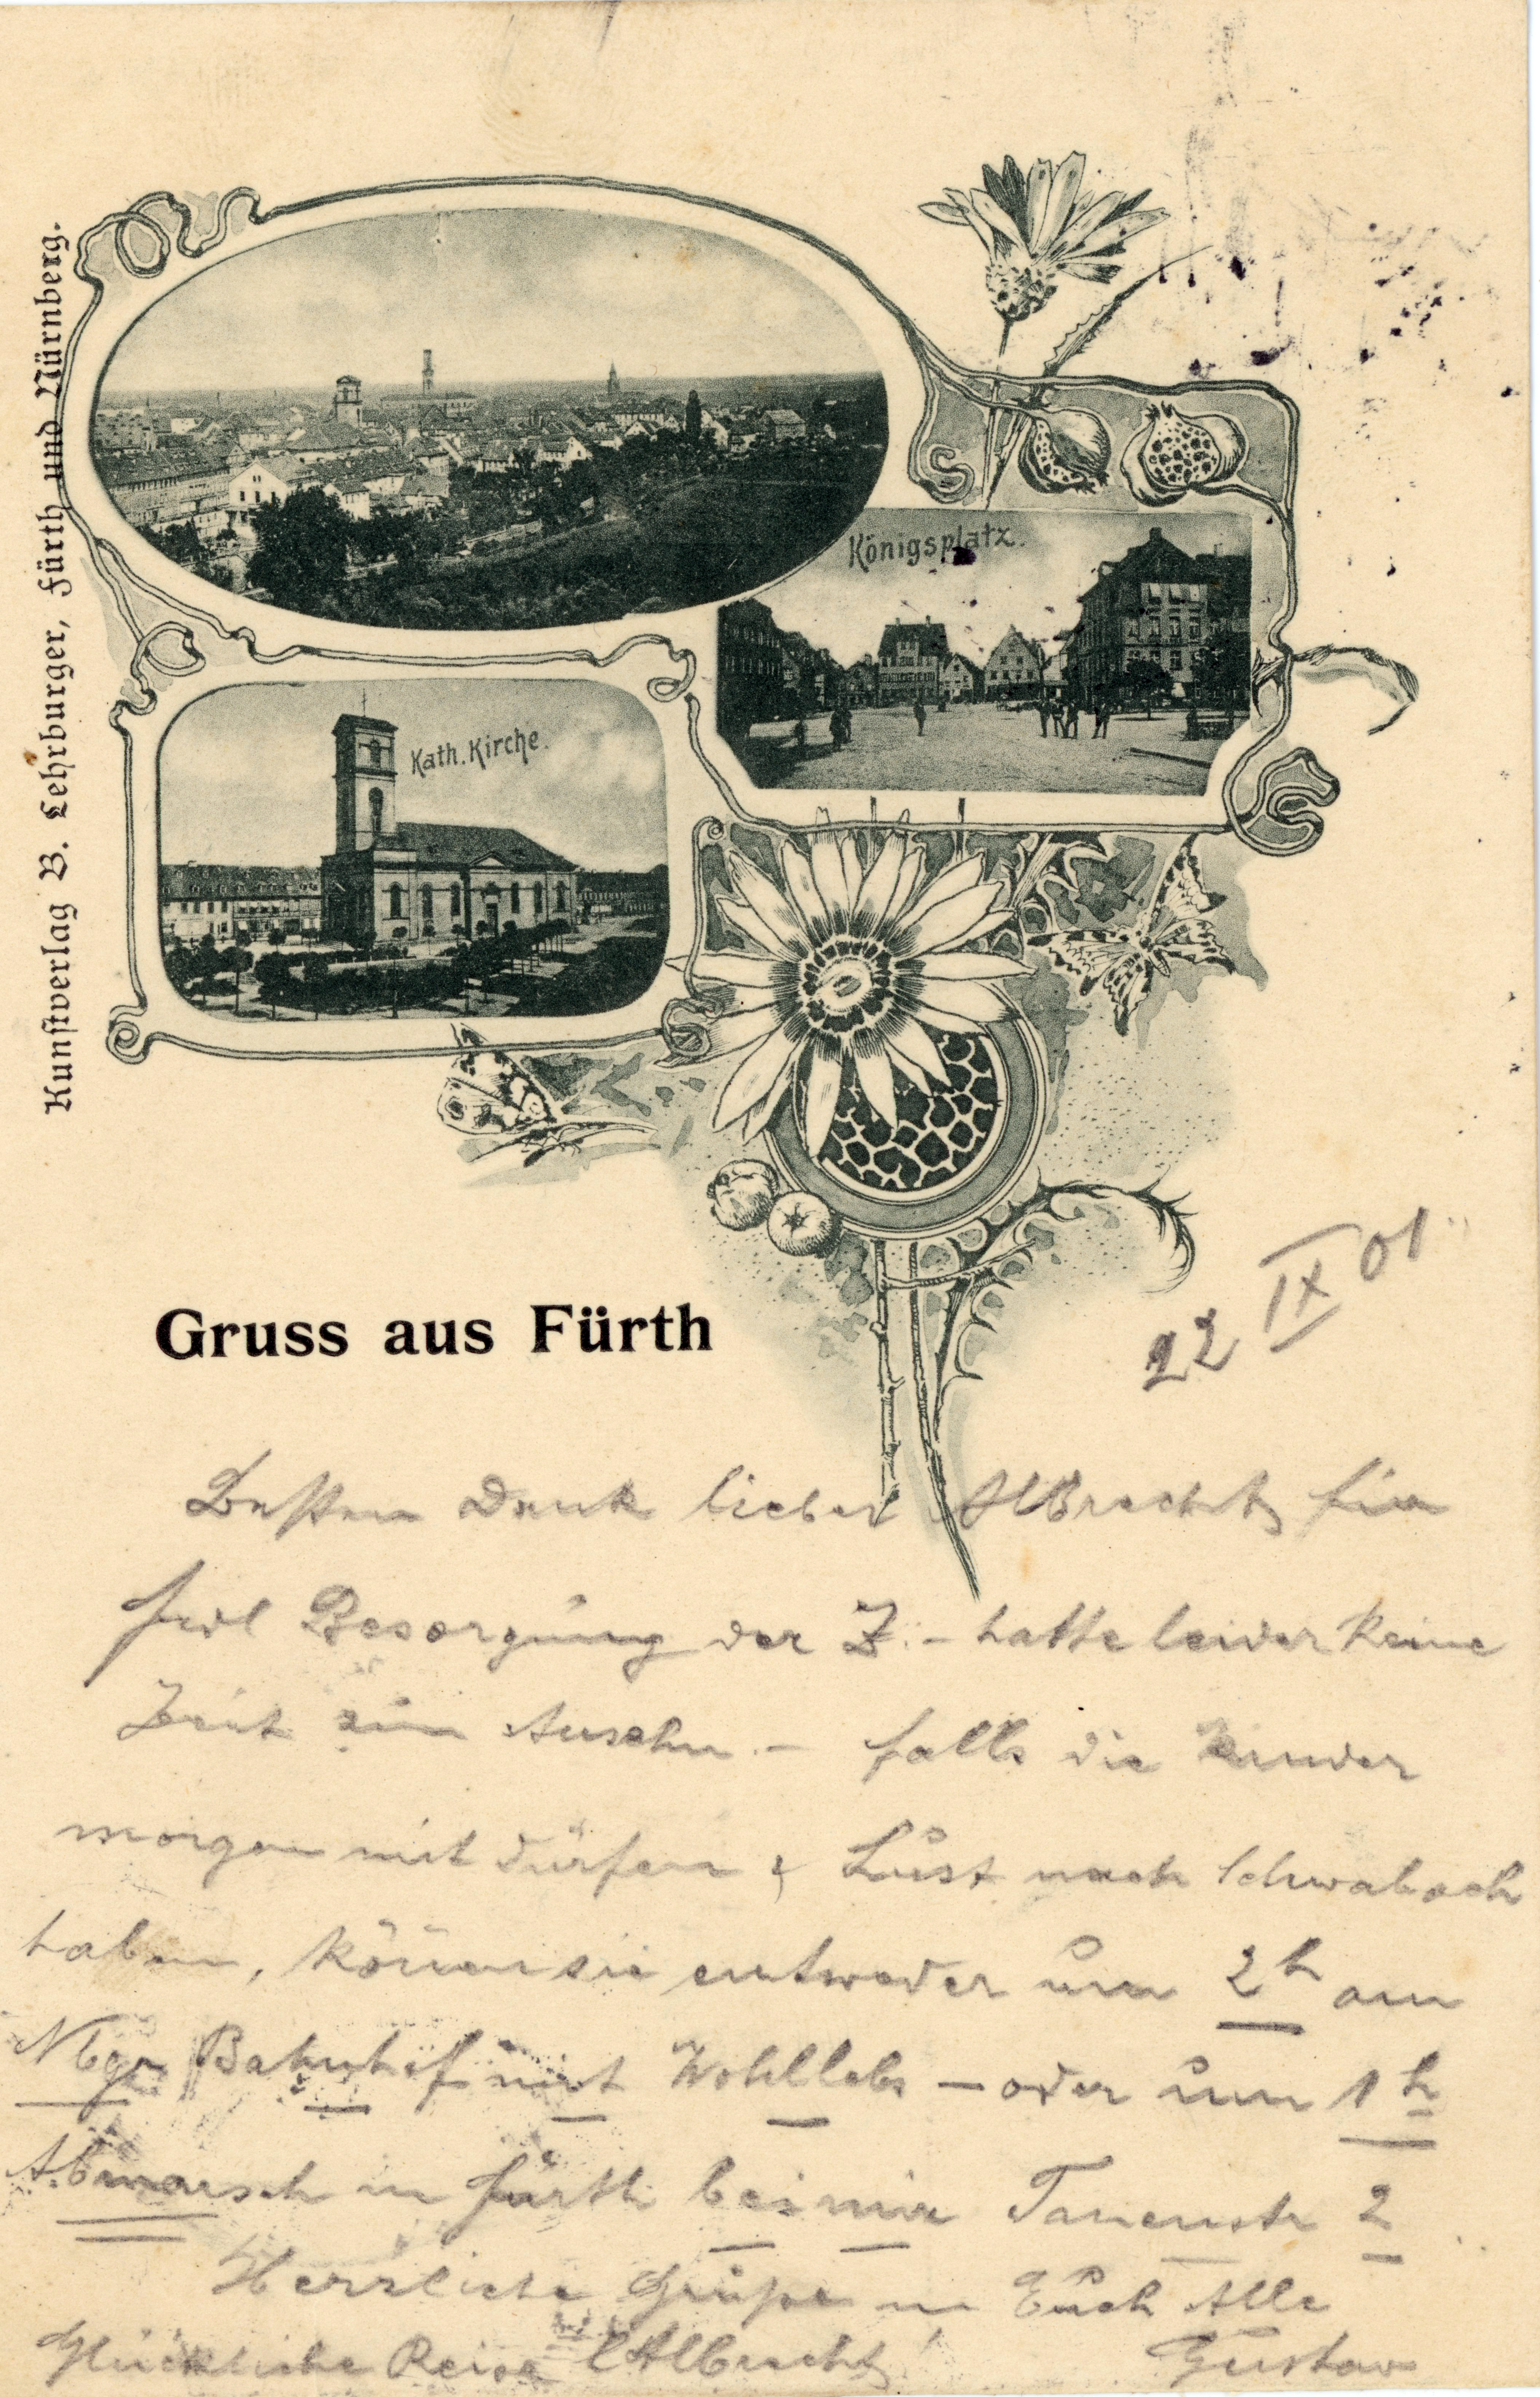 Kunstverlag B. Lehrburger, Fürth und Nürnberg.
Königsplatz.
Kath. Kirche.
Gruss aus Fürth
22 IX 01
Besten Dank lieber Albrecht für
Besorgung der Z. – hatte leider keine
Zeit zum Ansehn. – falls die Kinder
morgen mit dürfen & Lust nach Schwabach
haben, können sie entweder um 2h am
Nbgr Bahnhof mit Wohllebs – oder um 1h
Abmarsch in Fürth bei mir Tanenstr 2
Herzliche Grüße an Euch Alle
Glückliche Reise Albrecht! Gustav